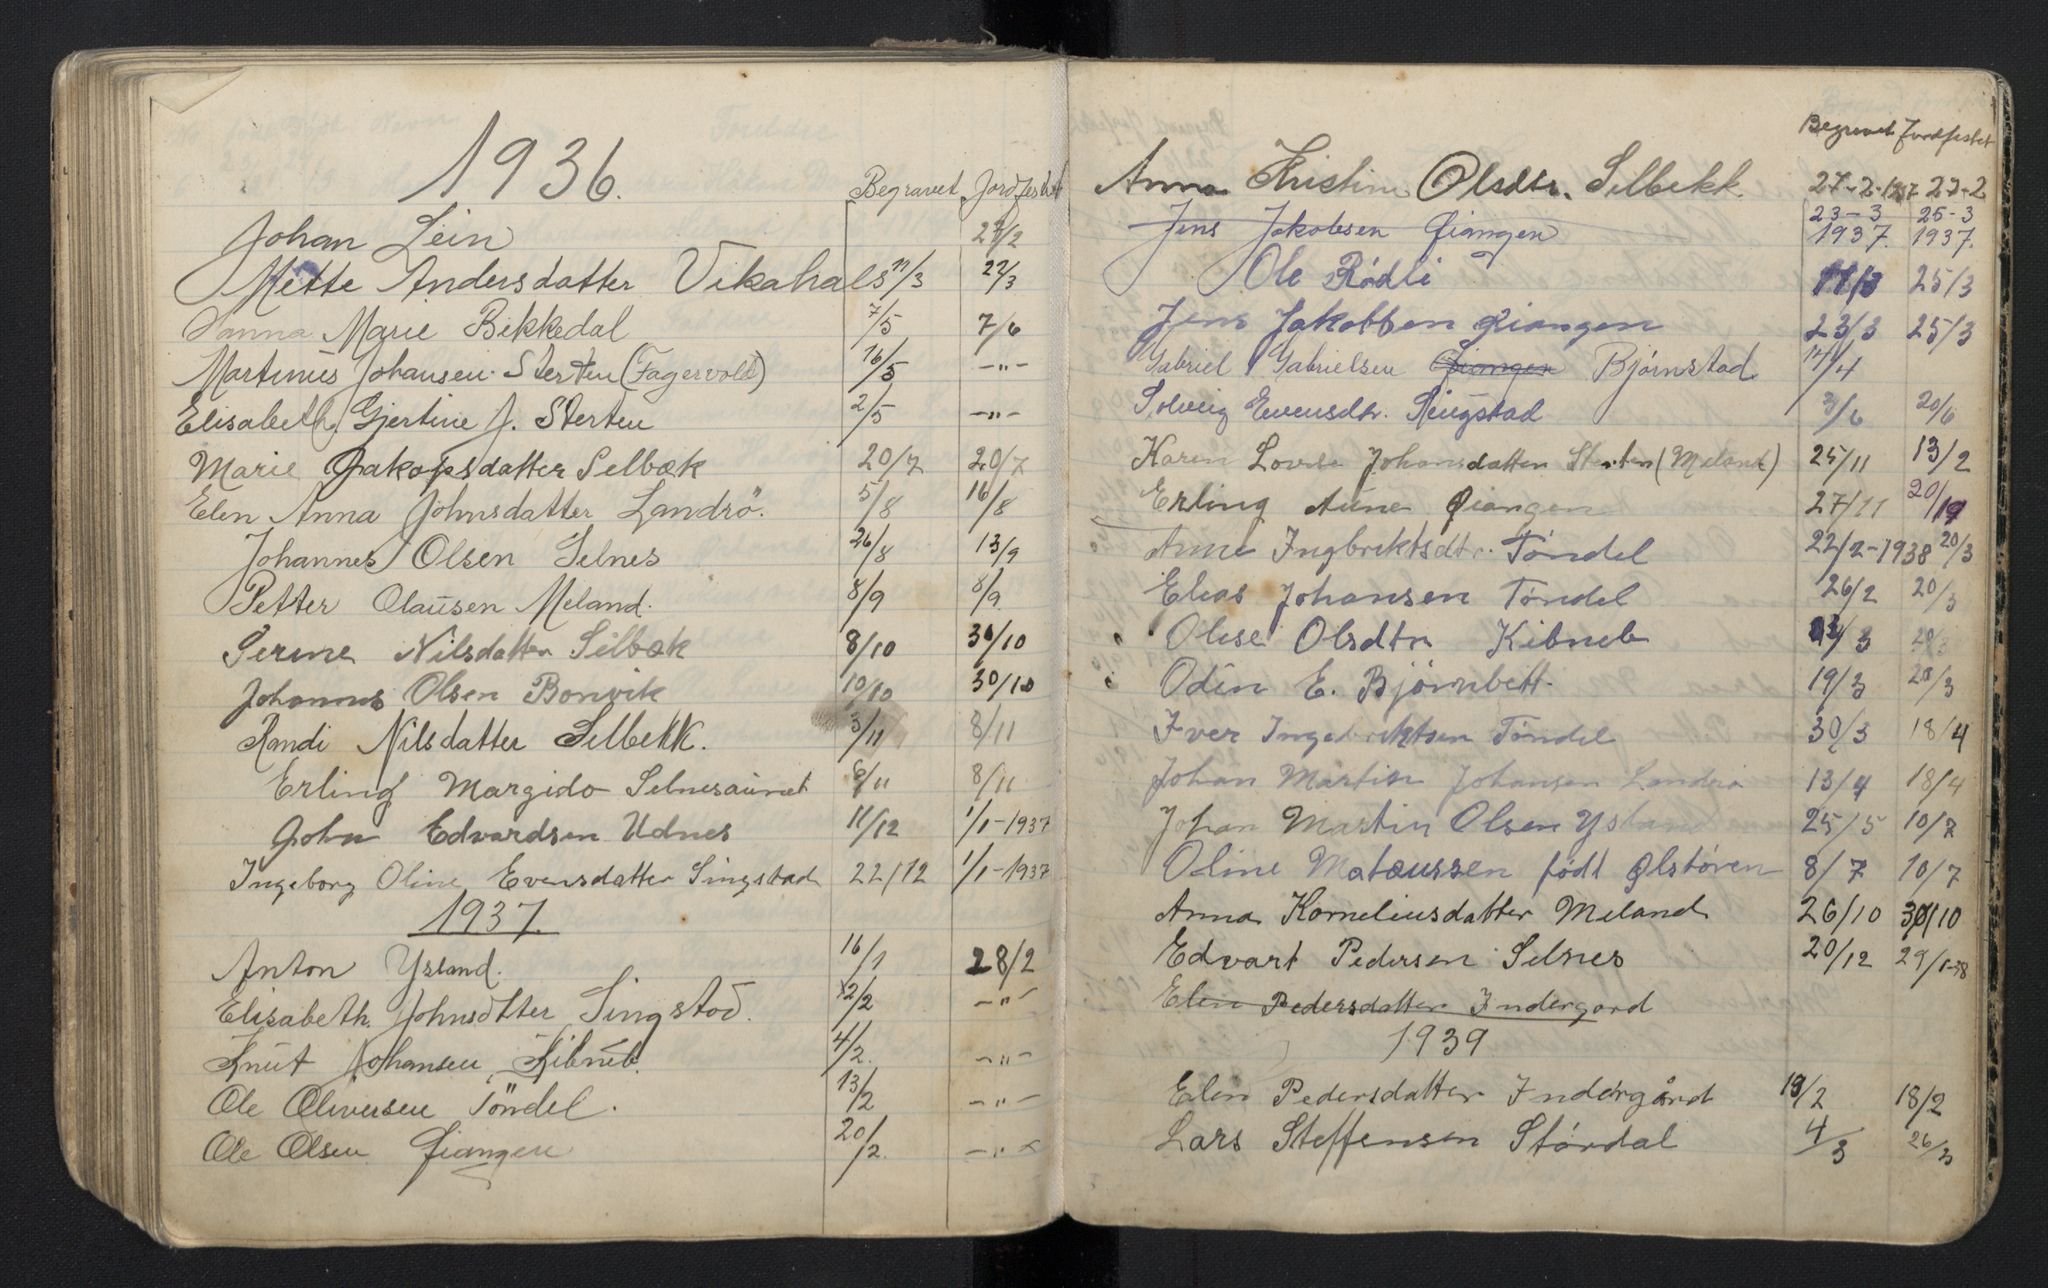 1936.
Begravet Jordfestet
Johan Lein 23/2
Mette Andersdatter Vikahals 11/3 22/3
Hanna Marie Bekkedal 7/5 7/6
Martinus Johansen Sterten (Fagervold) 16/5 -"-
Elisabeth Gjertine J. Sterten 2/5 -"-
Marie Jakopsdatter Selbæk 20/7 20/7
Elen Anna Johnsdatter Landrö. 5/8 16/8
Johannes Olsen Selnes 26/8 13/9
Petter Clausen Meland. 8/9 8/9
Serine Nilsdatter Selbæk 8/10 30/10
Johannes Olsen Bonvik 10/10 30/10
Randi Nilsdatter Selbekk. 3/11 8/11
Erling Margido Selnesaunet 6/11 8/11
John Edvardsen Udnes 11/12 1/1-1937
Ingeborg Oline Evensdatter Singstad 22/12 1/1-1937
1937.
Anton Ysland. 16/1 28/2
Elisabeth Johnsdtter Singstad. 12/2 -"-
Knut Johansen Kibneb. 4/2. -"-
Ole Oliversen Töndel. 13/2 -"-
Ole Olsen Øiangen 20/2. -"-
Begravet Jordfestet
Anna Kristine Olsdtr. Selbekk 27-2-1937 27-2
Jens Jakobsen Øiangen 23-3 1937. 25-3 1937.
Ole Rødli 11/3 25/3
Jens Jakobsen Øiangen 23/3 25/3
Gabriel Gabrielsen Øiangen Bjørnstad 14/4
Solveig Evensdtr. Singstad 3/6 20/6
Karen Lovise Johansdatter Sterten (Meland) 25/11 13/2
Erling Aune Øiangen 27/11 20/19
Anne Ingbriktsdtr. Töndel 22/2-1938 20/3
Elias Johansen Töndel 26/2 20/3
Olise Olsdtr Kibneb /3 20/3
Odin E. Bjørnbett. 19/3 20/3
Iver Ingebriktsen Töndel 30/3 18/4
Johan Martin Johansen Landrø 13/4 18/4
Johan Martin Olsen Ysland 25/5 10/7
Oline Matæussen født Ølstøren 8/7 10/7
Anna Korneliusdatter Meland 26/10 30/10
Edvart Pedersen Selnes 20/12 29/1-38
Elen Pedersdatter Indergard
1939
Elen Pedersdatter Indergård 13/2 18/2
Lars Steffensen Stördal 4/3 26/3